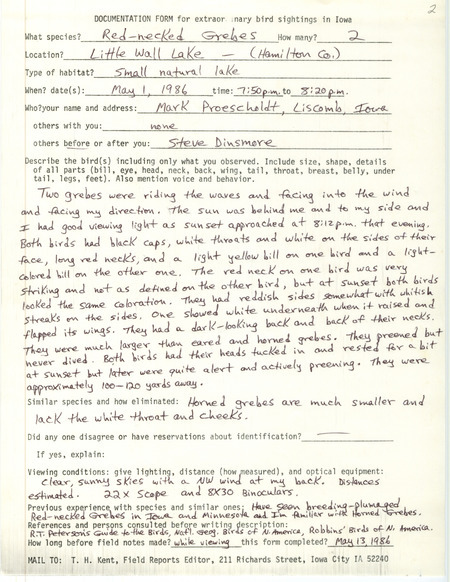 2
DOCUMENTATION FORM for extraor nary bird sightings in Iowa
What species? Red-necked Grebes How many? 2
Location? Little Wall Lake - (Hamilton Co.)
Type of habitat? small natural lake
When? date(s): May 1, 1986 time: 7:50 p.m. to 8:20 p.m.
Who? your name and address: Mark Proescholdt, Liscomb, Iowa
others with you: none
others before or after you: Steve Dinsmore
Describe the bird(s) including only what you observed. Include size, shape, details
of all parts (bill, eye, head, neck, back, wing, tail, throat, breast, belly, under
tail, legs, feet). Also mention voice and behavior.
Two grebes were riding the waves and facing into the wind
and facing my direction. The sun was behind me and to my side and
I had good viewing light as sunset approached at 8:12 p.m. that evening.
Both birds had black caps, white throats and white on the sides of their
face, long red necks, and a light yellow bill on one bird and a light-
colored bill on the other one. The red neck on one bird was very
striking and not as defined on the other bird, but at sunset both birds
looked the same coloration. They had reddish sides somewhat with whitish
streaks on the sides. One showed white underneath when it raised and
flapped its wings. They had a dark-looking back and back of their necks.
They were much larger than eared and horned grebes. They preened but
never dived. Both birds had their heads tucked in and rested for a bit
at sunset but later were quite alert and actively preening. They were
approximately 100-120 yards away.
Similar species and how eliminated: Horned grebes are much smaller and
lack the white throat and cheeks.
Did any one disagree or have reservations about identification?
If yes, explain:
Viewing conditions: give lighting, distance (how measured), and optical equipment:
clear, sunny skies with a NW wind at my back. Distances
estimated. 22X Scope and 8X30 Binoculars.
Previous experience with species and similar ones: Have seen breeding-plumaged
Red-necked Grebes in Iowa and Minnesota and I'm familiar with Horned Grebes.
References and persons consulted before writing description:
R.T. Peterson's Guide to the Birds, Natl. Geog. Birds of N. America, Robbins' Birds of N. America.
How long before field notes made? while viewing this form completed? May 13, 1986
MAIL TO: T. H. Kent, Field Reports Editor, 211 Richards Street, Iowa City IA 52240